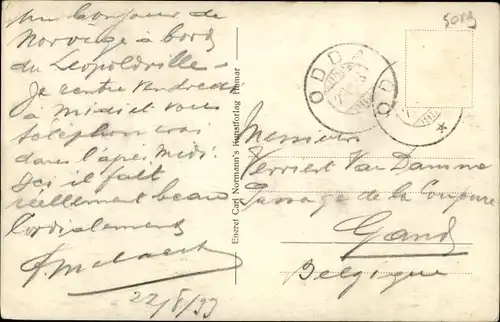 Un bonjour de
Norvège à bord
du Léopoldville
Je rentre vendredi
à midi et vous
telephonerai
dans l'après midi.
Ici il fait
réellement beau
Cordialement
22/8/33
Eneret Carl Normann's Kunstforlag Hamar
ODDA
ODDA
Messieurs
Verriest Van Damme
Passage de la Coupure
Gand
Belgique